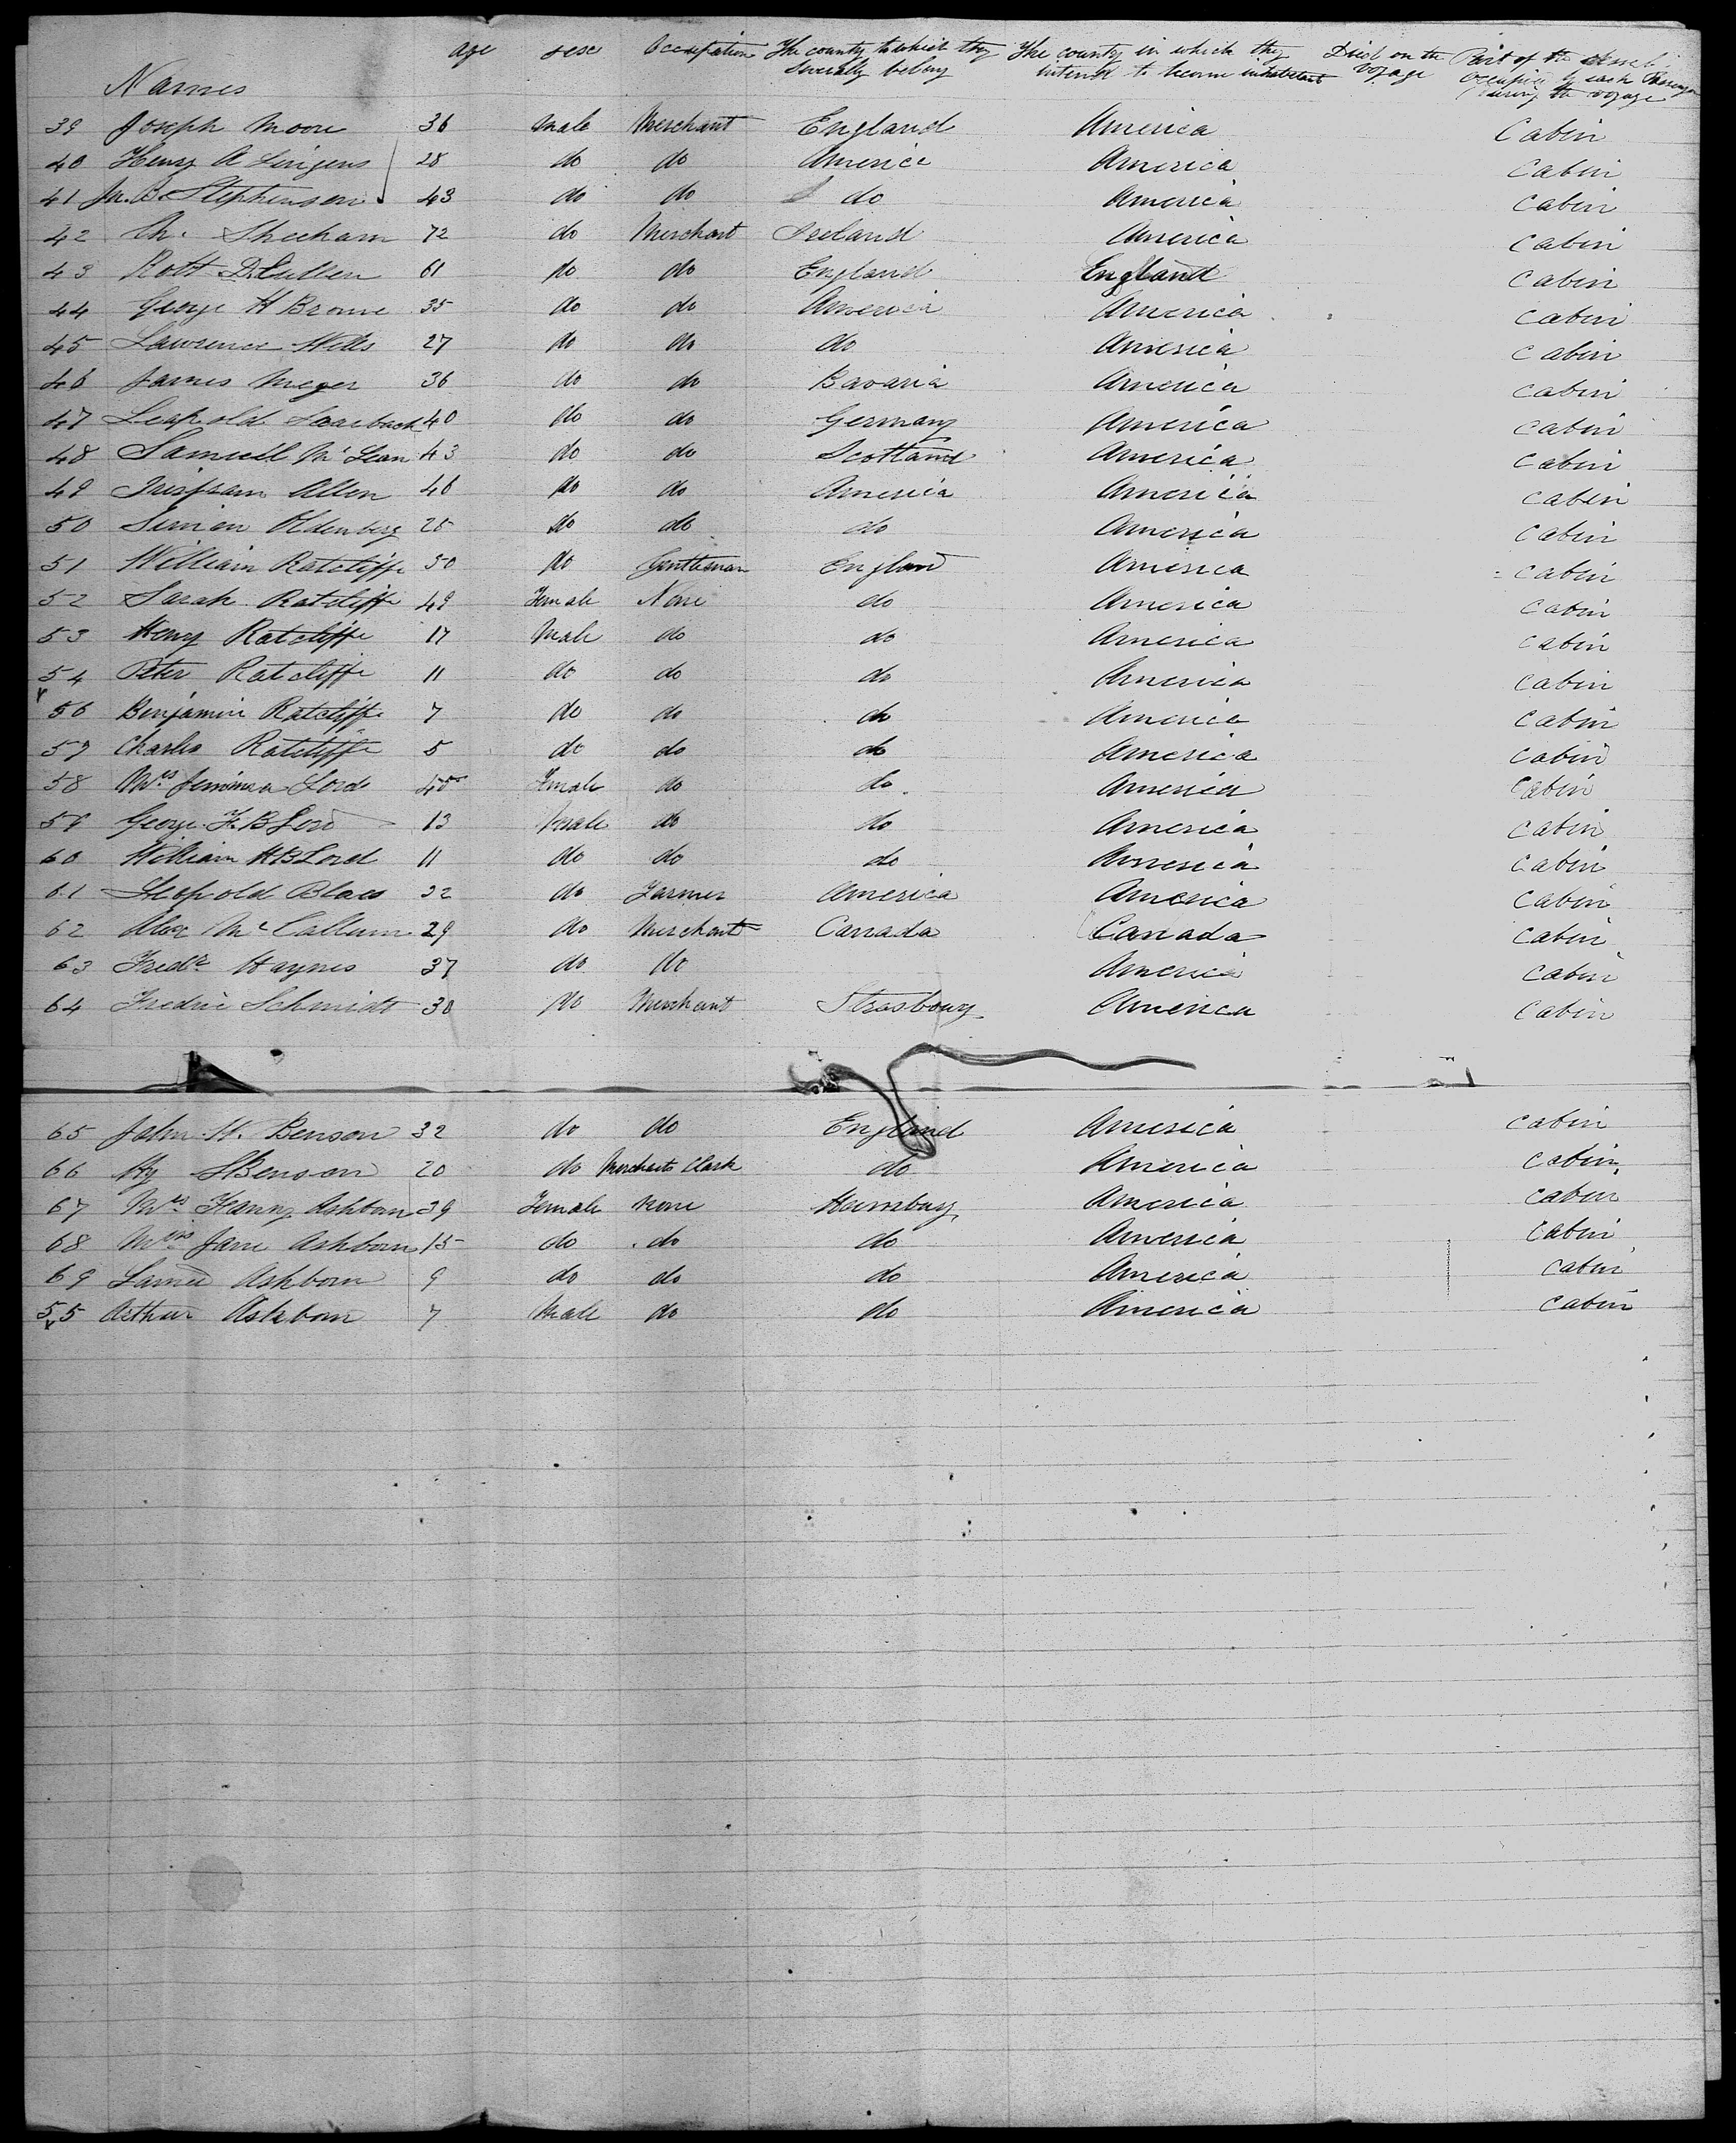 Names age sex Occupation The county to which they severally belong The county in which they intend to become inhabitant Died on the voyage Part of the vessel occupied by each Passenger during the voyage
39 Joseph Moore 36 Male Merchant England America Cabin
40 Henry A 28 do do America America Cabin
41 Jn. B. Stephenson 43 do do do America Cabin
42 Ch. Sheeham 72 do Merchant Ireland America Cabin
43 Robt D. Cullen 61 do do England England Cabin
44 George H Browne 35 do do America America Cabin
45 Lawrence Wells 27 do do do America Cabin
46 James Meyer 36 do do Bavaria America Cabin
47 Leopold 40 do do Germany America Cabin
48 Samuell Mc Lean 43 do do Scotland America Cabin
49 Allen 46 do do America America Cabin
50 Simion Oldenberg 25 do do do America Cabin
51 William Ratcliffe 50 do Gentleman England America Cabin
52 Sarah Ratcliffe 49 Female None do America Cabin
53 Henry Ratcliffe 17 Male do do America Cabin
54 Peter Ratcliffe 11 do do do America Cabin
56 Benjamin Ratcliffe 7 do do do America Cabin
57 Charles Ratcliffe 5 do do do America Cabin
58 Mrs Jemima Lord 45 Female do do America Cabin
59 George F. B Lord 13 Male do do America Cabin
60 William H B Lord 11 do do do America Cabin
61 Leopold Blaes 32 do Farmer America America Cabin
62 Alex Mc Callum 29 do Merchant Canada Canada Cabin
63 Fredk Haynes 37 do do America Cabin
64 Fredric Schmidt 30 do Merchant Strasbourg America Cabin
65 John H. Benson 32 do do England America Cabin
66 Hy S Benson 20 do Merchants Clark do America Cabin
67 Mrs Fanny Ashborn 39 Female None Hamburg America Cabin
68 Miss Jane Ashborn 15 do do do America Cabin
69 Ashborn 9 do do do America Cabin
55 Arthur Ashborn 7 Male do do America Cabin